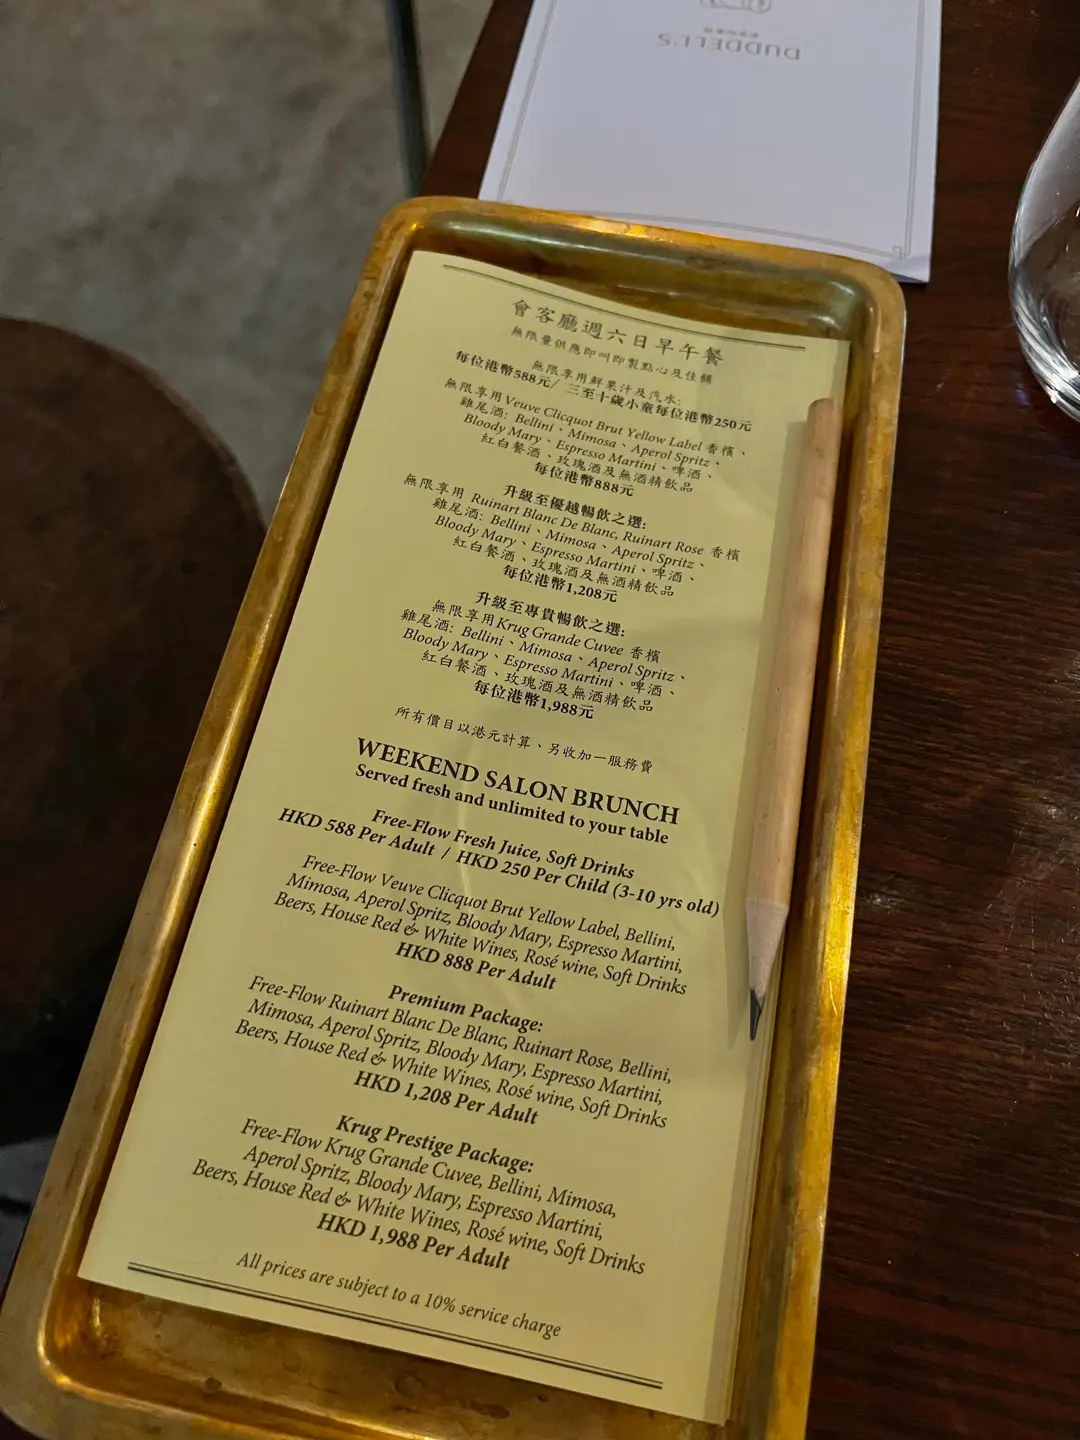 DUDDELL'S
會客廳週六日早午餐
無限量供應即叫即製點心及佳餚
無限享用鮮果汁及汽水:
每位港幣588元/ 三至十歲小童每位港幣250元
無限享用Veuve Clicquot Brut Yellow Label 香檳、
雞尾酒: Bellini、Mimosa、Aperol Spritz、
Bloody Mary、Espresso Martini、啤酒、
紅白餐酒、玫瑰酒及無酒精飲品
每位港幣888元
升級至優越暢飲之選:
無限享用 Ruinart Blanc De Blanc, Ruinart Rose 香檳
雞尾酒: Bellini、Mimosa、Aperol Spritz、
Bloody Mary、Espresso Martini、啤酒、
紅白餐酒、玫瑰酒及無酒精飲品
每位港幣1,208元
升級至專貴暢飲之選:
無限享用Krug Grande Cuvee 香檳
雞尾酒: Bellini、Mimosa、Aperol Spritz、
Bloody Mary、Espresso Martini、啤酒、
紅白餐酒、玫瑰酒及無酒精飲品
每位港幣1,988元
所有價目以港元計算、另收加一服務費
WEEKEND SALON BRUNCH
Served fresh and unlimited to your table
Free-Flow Fresh Juice, Soft Drinks
HKD 588 Per Adult / HKD 250 Per Child (3-10 yrs old)
Free-Flow Veuve Clicquot Brut Yellow Label, Bellini,
Mimosa, Aperol Spritz, Bloody Mary, Espresso Martini,
Beers, House Red & White Wines, Rosé wine, Soft Drinks
HKD 888 Per Adult
Premium Package:
Free-Flow Ruinart Blanc De Blanc, Ruinart Rose, Bellini,
Mimosa, Aperol Spritz, Bloody Mary, Espresso Martini,
Beers, House Red & White Wines, Rosé wine, Soft Drinks
HKD 1,208 Per Adult
Krug Prestige Package:
Free-Flow Krug Grande Cuvee, Bellini, Mimosa,
Aperol Spritz, Bloody Mary, Espresso Martini,
Beers, House Red & White Wines, Rosé wine, Soft Drinks
HKD 1,988 Per Adult
All prices are subject to a 10% service charge